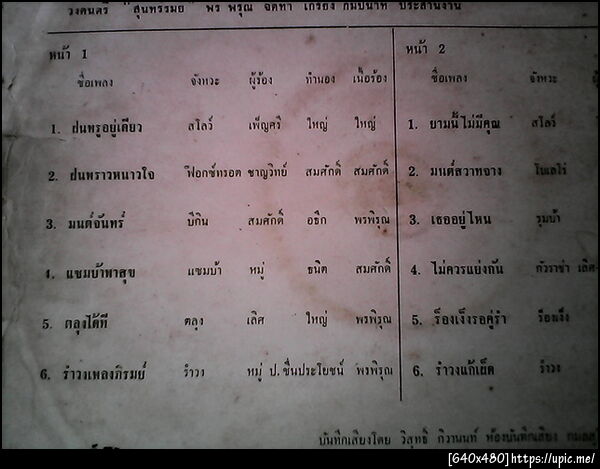 วงดนตรี "สุนทรรมย์" พร พรุณ จัดทำ เกรียง กัมปนาท ประสานงาน
หน้า 1 หน้า 2
ชื่อเพลง จังหวะ ผู้ร้อง ทำนอง เนื้อร้อง ชื่อเพลง จังหวะ
1. ฝนพรูอยู่เดียว สโลว์ เพ็ญศรี ใหญ่ ใหญ่ 1. ยามนี้ไม่มีคุณ สโลว์
2. ฝนพราวหนาวใจ ฟ๊อกซ์ทรอต ชาญวิทย์ สมศักดิ์ สมศักดิ์ 2. มนต์สวาทจาง โบเลโร่
3. มนต์จันทร์ บีกิน สมศักดิ์ อธิก พรพิรุณ 3. เธออยู่ไหน รุมบ้า
4. แซมบ้าพาสุข แซมบ้า หมู่ ธนิต สมศักดิ์ 4. ไม่ควรแย่งกัน กัวราช่า เลิศ
5. ตลุงได้ที ตลุง เลิศ ใหญ่ พรพิรุณ 5. ร็องเง็งรอคู่รำ ร็องเง็ง
6. รำวงเพลงภิรมย์ รำวง หมู่ ป. ชื่นประโยชน์ พรพิรุณ 6. รำวงแก้เผ็ด รำวง
บันทึกเสียงโดย วิสุทธิ ห้องบันทึกเสียง กมลสุ
[640x480]https://upic.me/